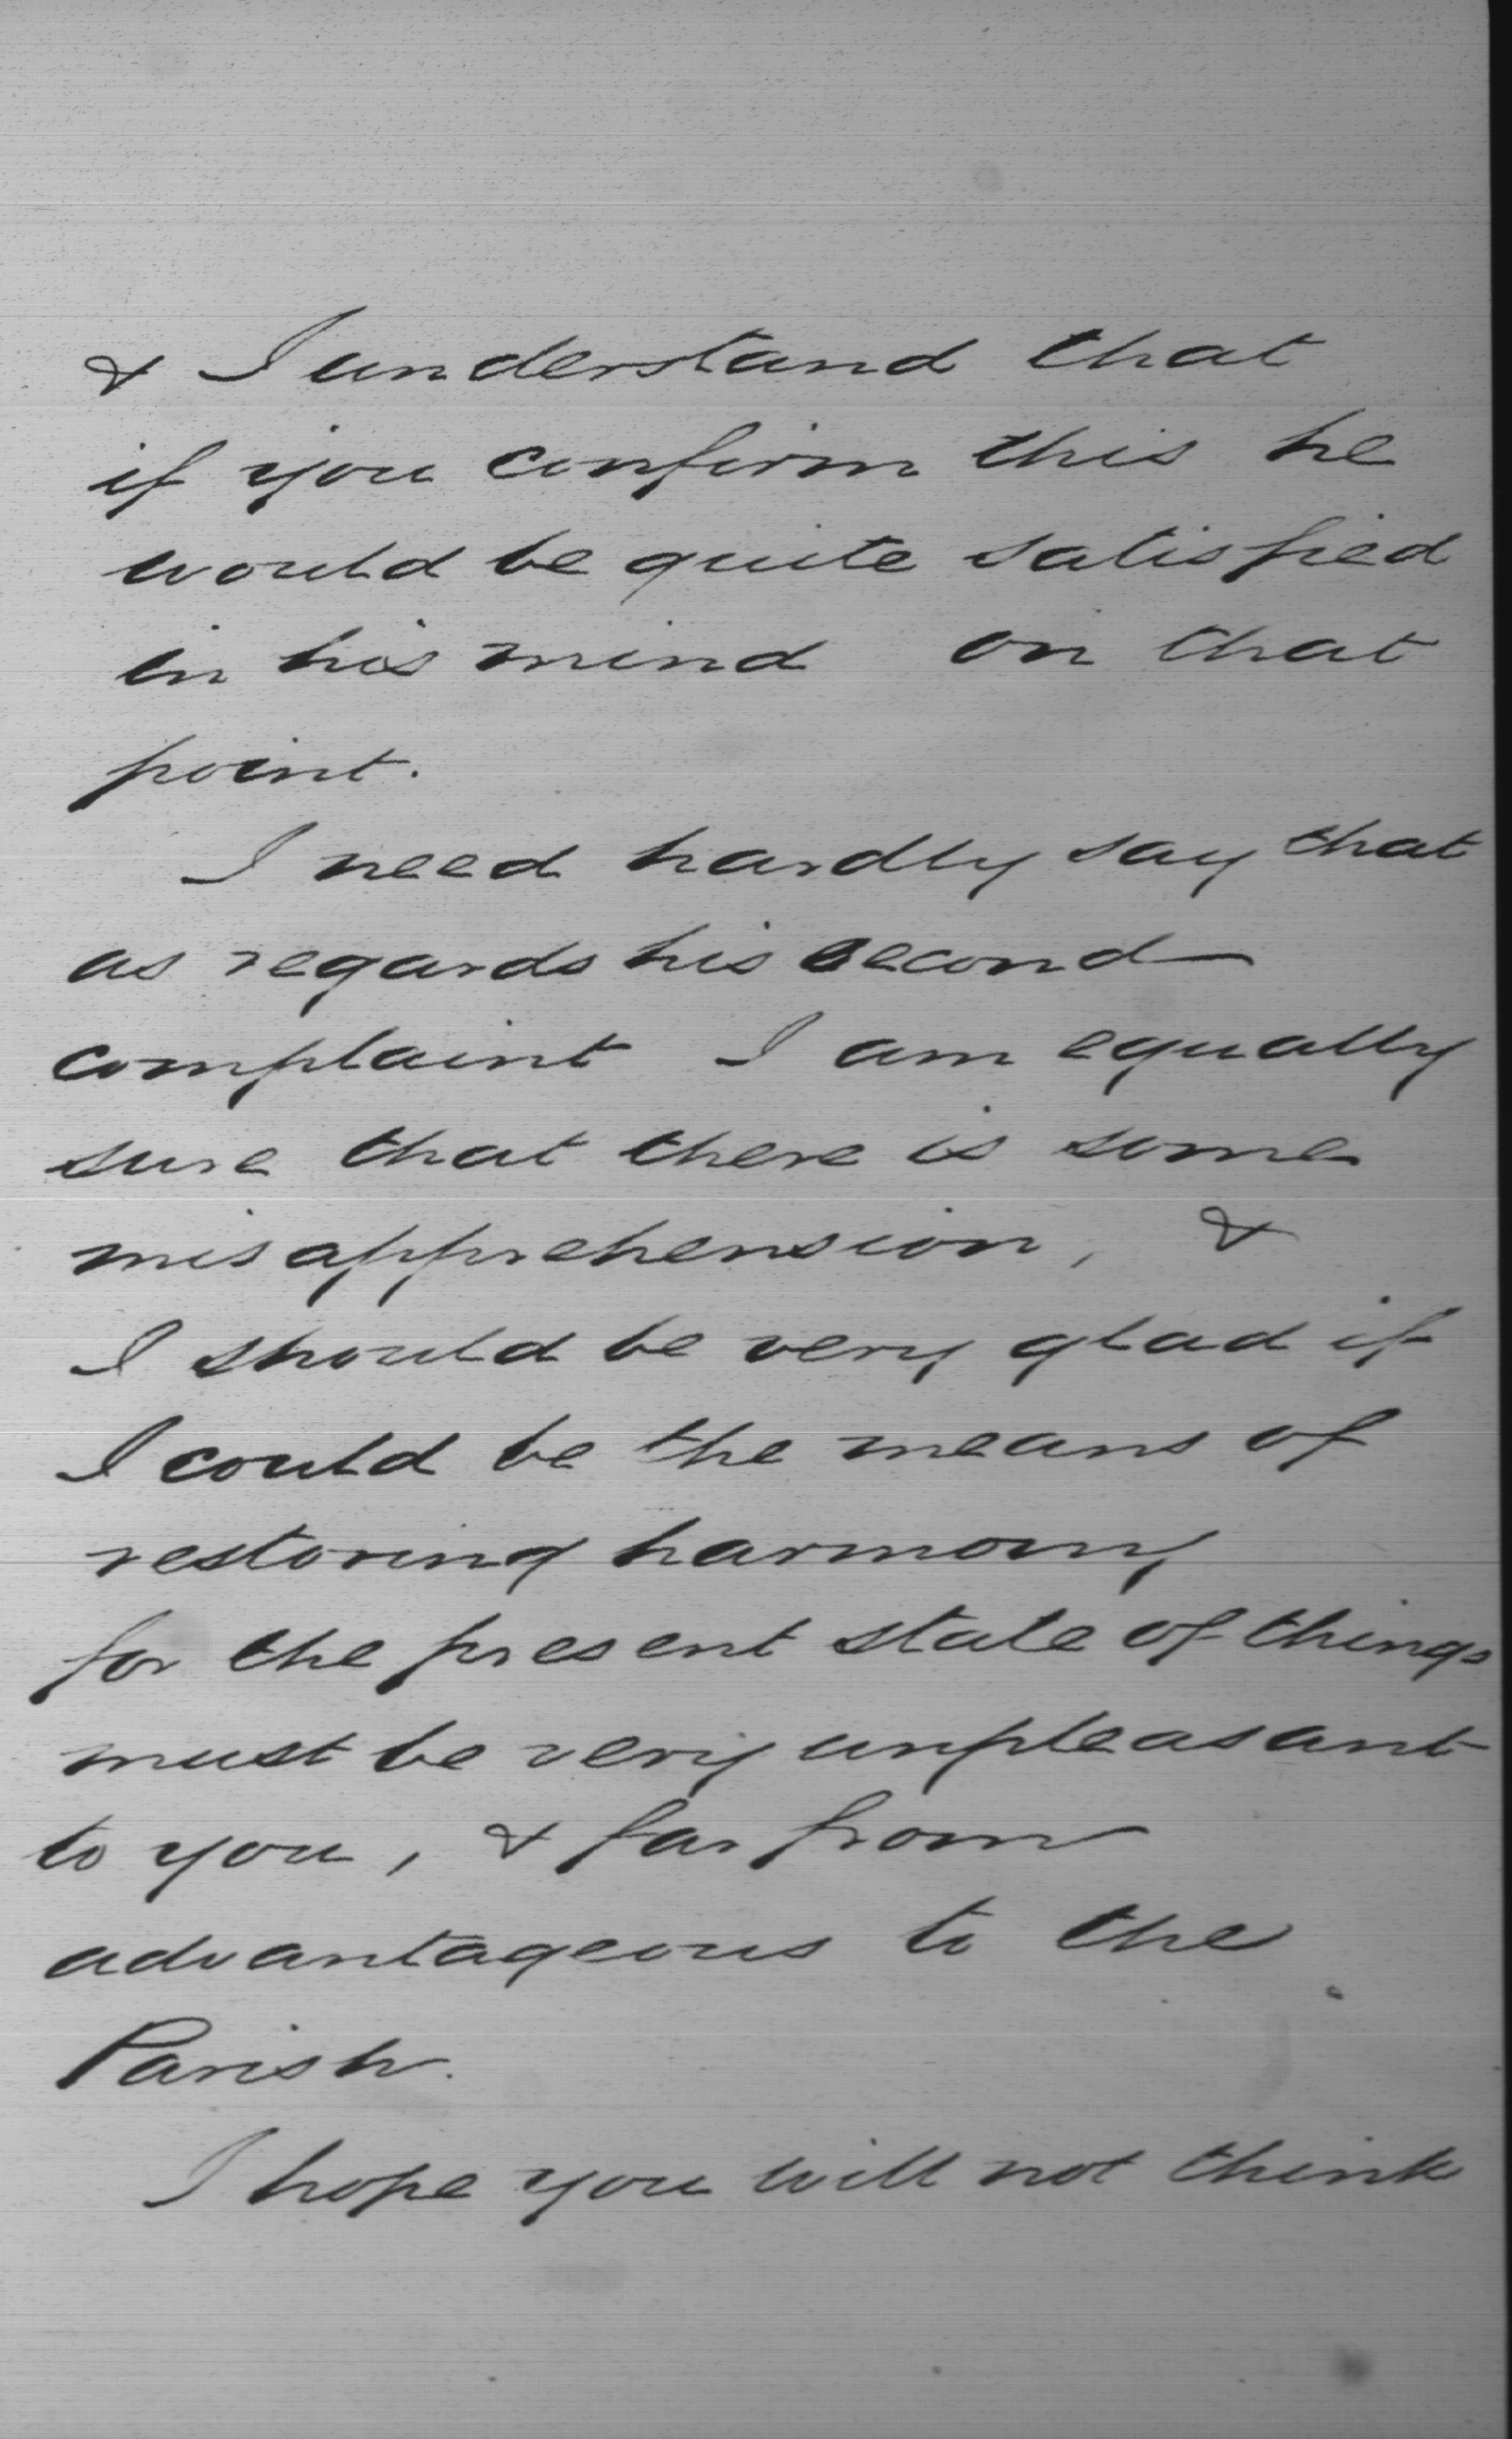 & I understand that
if you confirm this he
would be quite satisfied
in his mind on that
point.
I need hardly say that
as regards his second
complaint I am equally
sure that there is some
misapprehension, &
I should be very glad if
I could be the means of
restoring harmony
for the present state of things
must be very unpleasant
to you, & far from
advantageous to the
Parish.
I hope you will not think